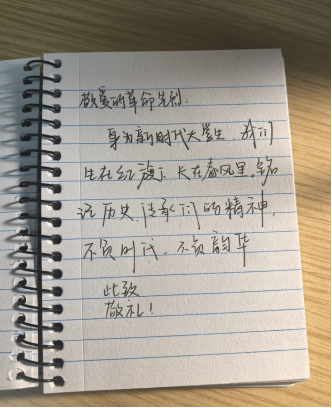 敬爱的革命先烈:
身为新时代大学生 我们
生在红旗下 长在春风里, 铭
记历史, 传承你们的精神,
不负时代, 不负韶华
此致
敬礼!